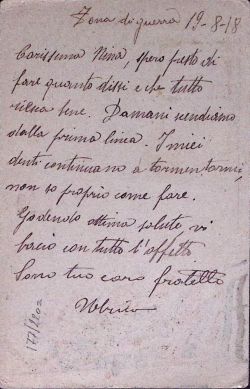 Zona di guerra 19-8-18
Carissima Nina, spero presto di
fare quanto dissi e che tutto
riesca bene. Domani scendiamo
dalla prima linea. I miei
denti continuano a tormentarmi,
non so proprio come fare.
Godendo ottima salute, vi
bacio con tutto l'affetto
Sono tuo caro fratello